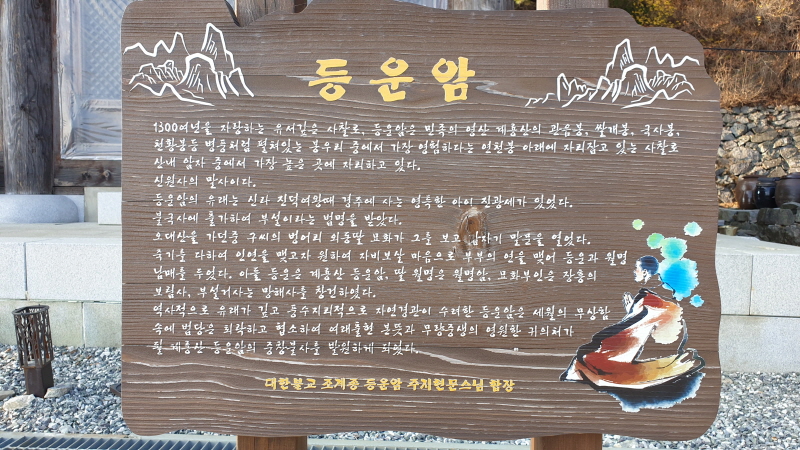 등운암
1300여년을 자랑하는 유서깊은 사찰로, 등운암은 민족의 영산 계룡산의 관음봉, 쌀개봉, 국사봉,
천황봉등 병풍처럼 펼쳐있는 봉우리 중에서 가장 영험하다는 연천봉 아래에 자리잡고 있는 사찰로
산내 암자 중에서 가장 높은 곳에 자리하고 있다.
신원사의 말사이다.
등운암의 유래는 신라 진덕여왕때 경주에 사는 영특한 아이 진광세가 있었다.
불국사에 출가하여 부설이라는 법명을 받았다.
오대산을 가던중 구씨의 벙어리 외동딸 묘화가 그를 보고 말문을 열었다.
죽기를 다하여 인연을 맺고자 원하여 자비보살 마음으로 부부의 연을 맺어 등운과 월명
남매를 두었다. 아들 등운은 계룡산 등운암, 딸 월명은 월명암, 묘화부인은 장흥의
보림사, 부설거사는 망해사를 창건하였다.
역사적으로 유래가 깊고 풍수지리적으로 자연경관이 수려한 등운암은 세월의 무상함
속에 법당은 퇴락하고 협소하여 여래출현 본뜻과 무량중생의 영원한 귀의처가
될 계룡산 등운암의 중창불사를 발원하게 되었다.
대한불교 조계종 등운암 주지현문스님 합장